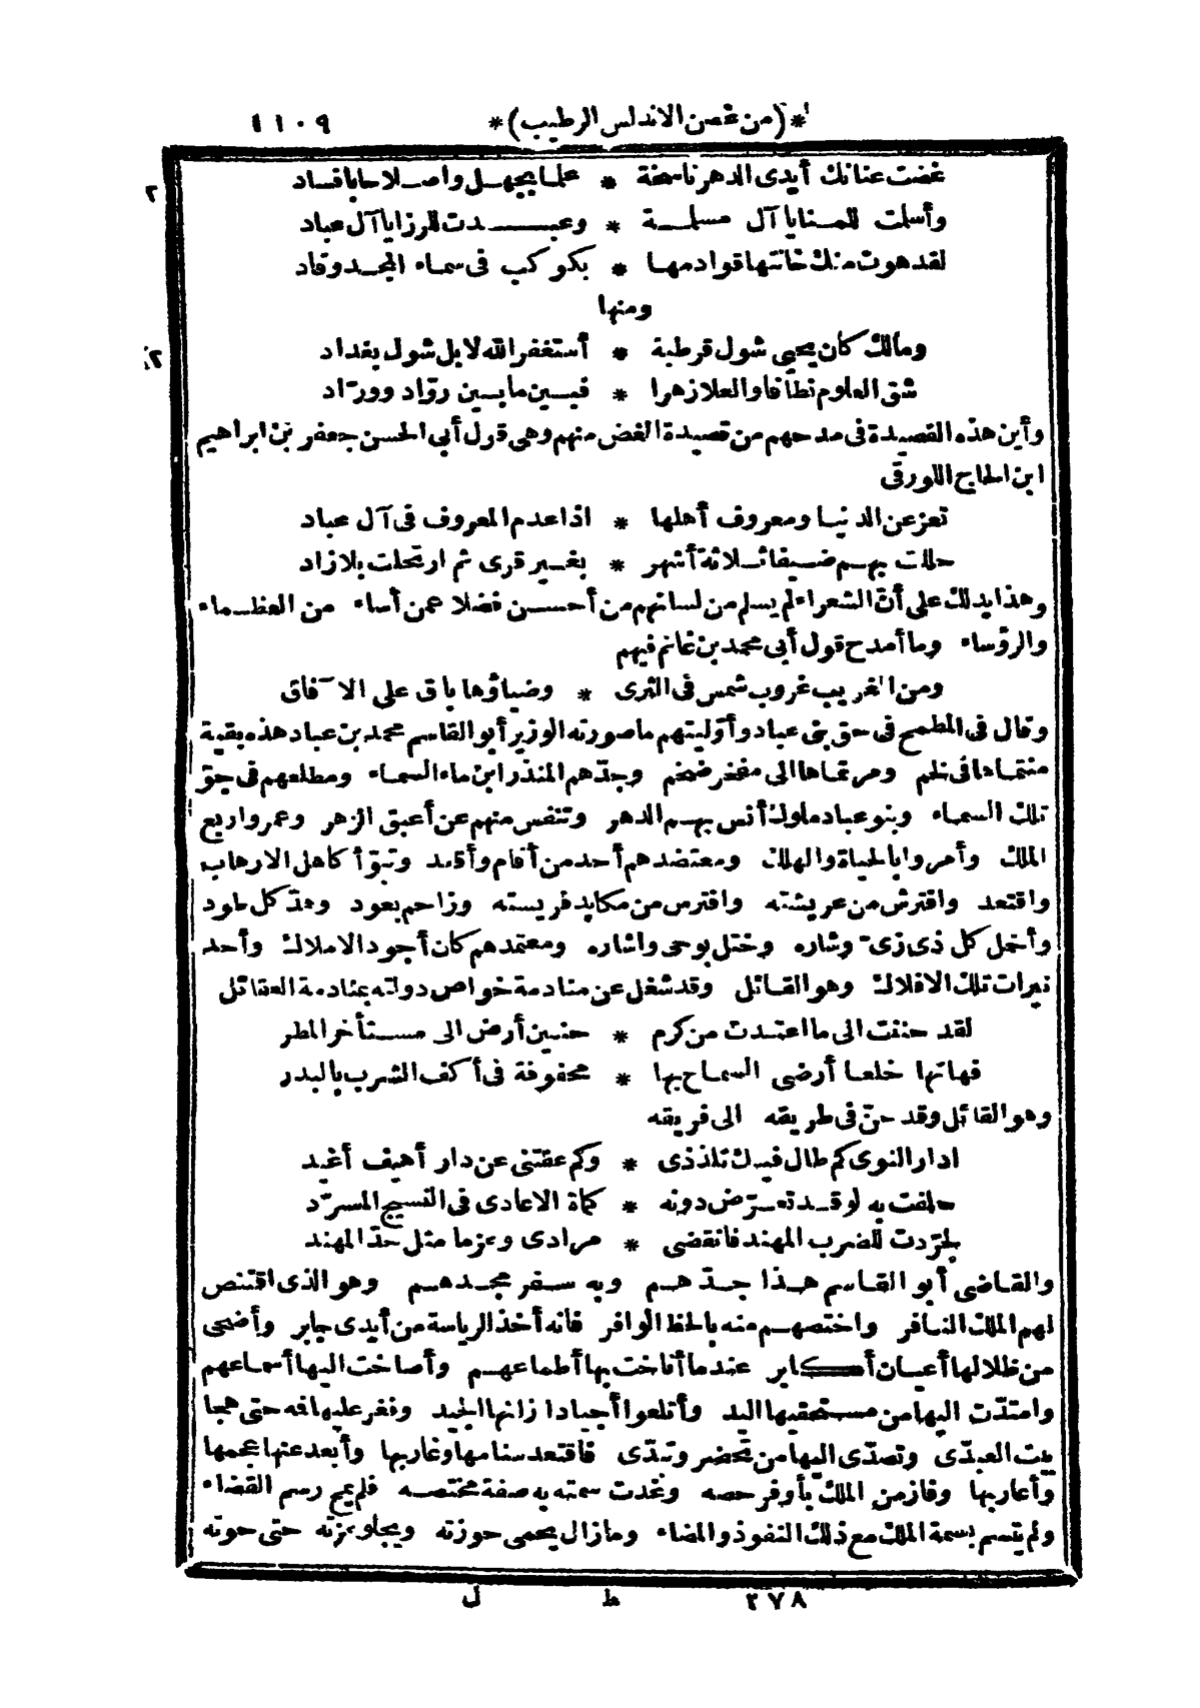 *(من غصن الاندلس الرطيب)* ١١٠٩
غضت عنانك أيدى الدهر ناسخة * علما بجهــل واصــلاحا بافساد
وأسلمت للمــنايا آل مسلمــة * وعبــــدت للرزايا آل عباد
لقد هوت منك خانتها قوادمهــا * بكوكب فى سماء المجــد وقاد
ومنها
ومالك كان يحيى شول قرطبة * أستغفر الله لا بل شول بغداد
شق العلوم نطافا والعلا زهرا * فبــين ما بــين روّاد وورّاد
وأين هذه القصيدة فى مدحهم من قصيدة الغض منهم وهى قول أبى الحسن جعفر بن ابراهيم
ابن الحاج اللورقى
تعز عن الدنيــا ومعروف أهلها * اذا عدم المعروف فى آل عباد
حللت بهــم ضــيفا ثــلاثة أشهر * بغــير قرى ثم ارتحلت بلا زاد
وهذا يدلك على أن الشعراء لم يسلم من لسانهم من أحســن فضلا عمن أساء من العظــماء
والرؤساء وما أمدح قول أبى محمد بن غانم فيهم
ومن الغريب غروب شمس فى الثرى * وضياؤها باق على الآفاق
وقال فى المطمح فى حق بنى عباد وأوّليتهم ما صورته الوزير أبو القاسم محمد بن عباد هذه بقية
منتماها فى لخم ومرتماها الى مفخر ضخم وجدّهم المنذر ابن ماء السماء ومطلعهم فى جوّ
تلك السماء وبنو عباد ملوك أنس بهــم الدهر وتنفس منهم عن أعبق الزهر وعمروا ربع
الملك وأمروا بالحياة والهلك ومعتضدهم أحد من أقام وأقعد وتبوّأ كاهل الارهاب
واقتعد وافترش من عريشته وافترس من مكايد فريسته وزاحم بعود وهدّ كل طود
وأخمل كل ذى زى وشاره وختل بوحى واشاره ومعتمدهم كان أجود الاملاك وأحد
نيرات تلك الافلاك وهو القائل وقد شغل عن منادمة خواص دولته بمنادمة العقائل
لقد حننت الى ما اعتــدت من كرم * حنــين أرض الى مســتأخر المطر
فهاتها خلعــا أرضى السماح بها * محفوفة فى أكف الشرب بالبدر
وهو القائل وقد حنّ فى طريقه الى فريقه
ادار النوى كم طال فيك تلذذى * وكم عقتنى عن دار أهيف أغيد
حلفت به لو قــد تعــرّض دونه * كماة الاعادى فى النسيج المسرّد
لجرّدت للضرب المهند فانقضى * مرادى وعزما مثل حدّ المهند
والقــاضى أبو القــاسم هــذا جــدّهــم وبه ســفر مجــدهــم وهو الذى اقتنص
لهم الملك النــافر واختصهــم منه بالحظ الوافر فانه أخذ الرياسة من أيدى جبابر وأضحى
من ظلالها أعيــان أكــابر عند ما أناخت بها أطماعهــم وأصاخت اليها أسمــاعهم
وامتدّت اليها من مســتحقيها اليد وأتلعوا أجيادا زانها الجيد وفغر عليها فه حتى هجا
بيت العبدّى وتصدّى اليها من تحضر وتبدّى فاقتعد سنامها وغاربها وأبعد عنها عجمها
وأعاربها وفاز من الملك بأوفر حصه وغدت سمته به صفة مختصــه فلم يمح رسم القضاء
ولم يتسم بسمة الملك مع ذلك النفوذ والمضاء وما زال يحمى حوزته ويجلو عزته حتى حوته
٢٧٨ ط ل